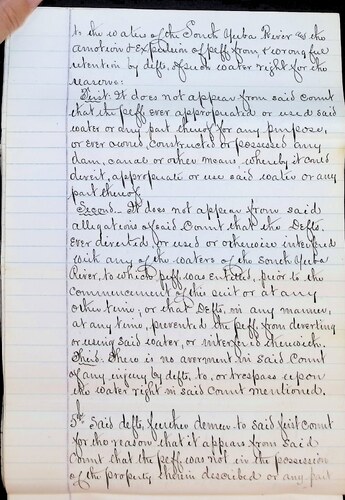 to the waters of the South Yuba River as the
amotion & expulsion of plff from, & wrongful
retention by defts, of such water right for the
reasons:
First: It does not appear from said Count
that the plff ever appropriated or used said
water or any part thereof for any purpose,
or ever owned, constructed or possessed any
dam, canal or other means whereby it could
divert, appropriate or use said water or any
part thereof.
Second. It does not appear from said
allegations of said Count that the Defts.
ever diverted, or used or otherwise interfered
with any of the waters of the South Yuba
River, to which plff was entitled, prior to the
commencement of this suit or at any
other time; or that Defts, in any manner,
at any time, prevented the plff from diverting
or using said water, or interfered therewith.
Third. There is no averment in said Count
of any injury by defts, to, or trespass upon
the water right in said Count mentioned.
5th Said defts, further demur to said first Count
for the reason that it appears from said
Count that the plff was not in the possession
of the property therein described or any part